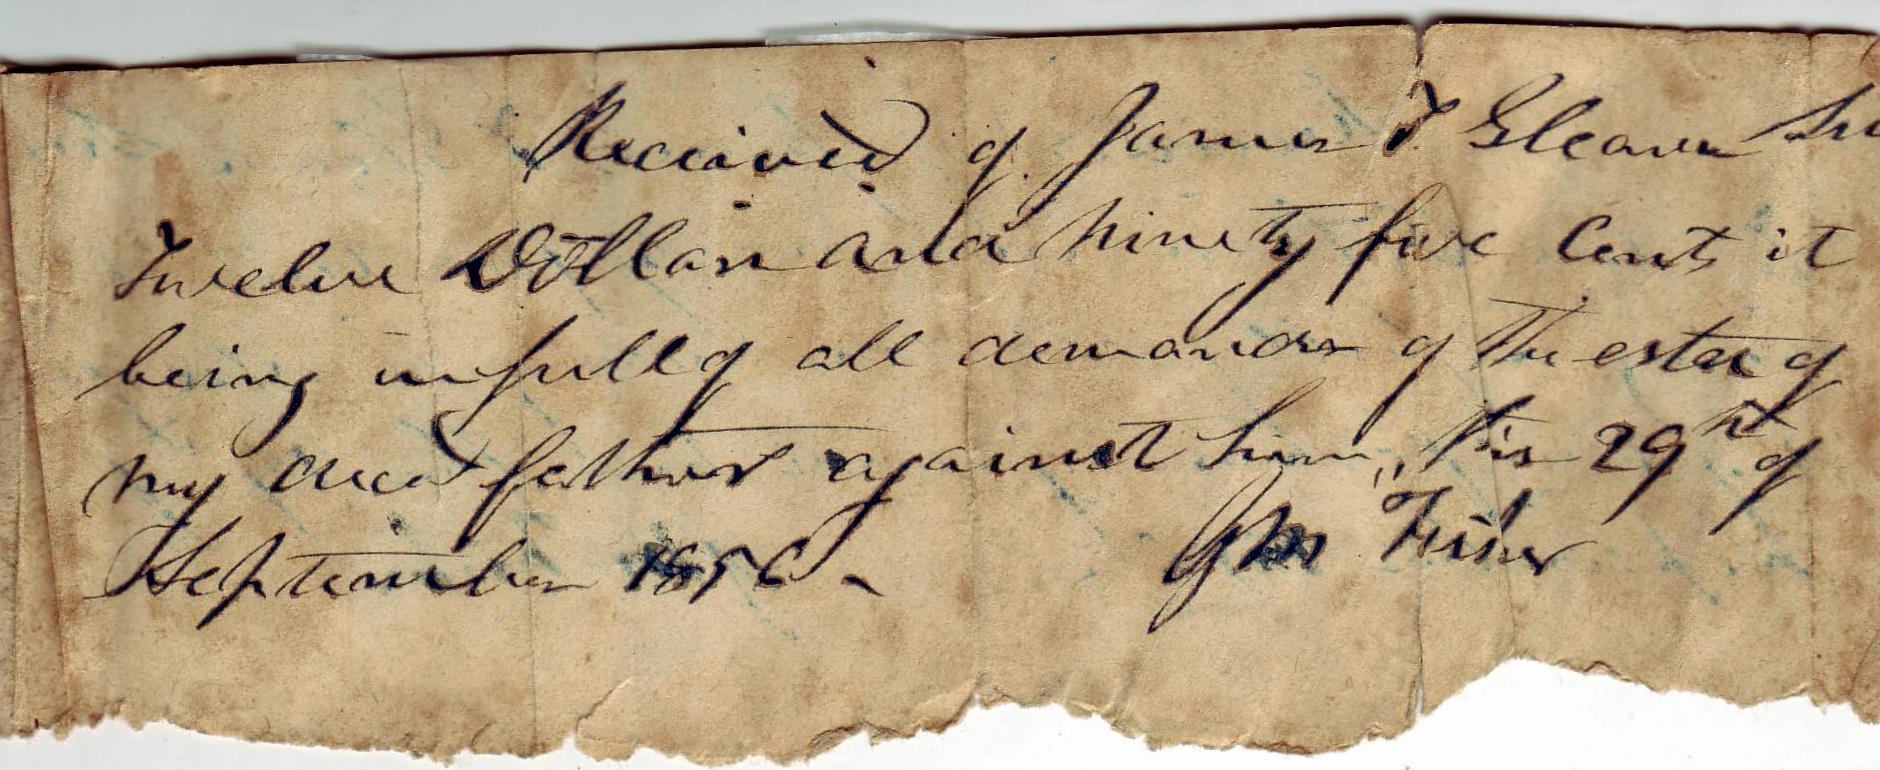 Received of James T Gleaves Sr
Twelve Dollars and ninety five Cents it
being in full of all demands of the estate of
my decd father against him, this 29th of
September 1856
J M Fisher